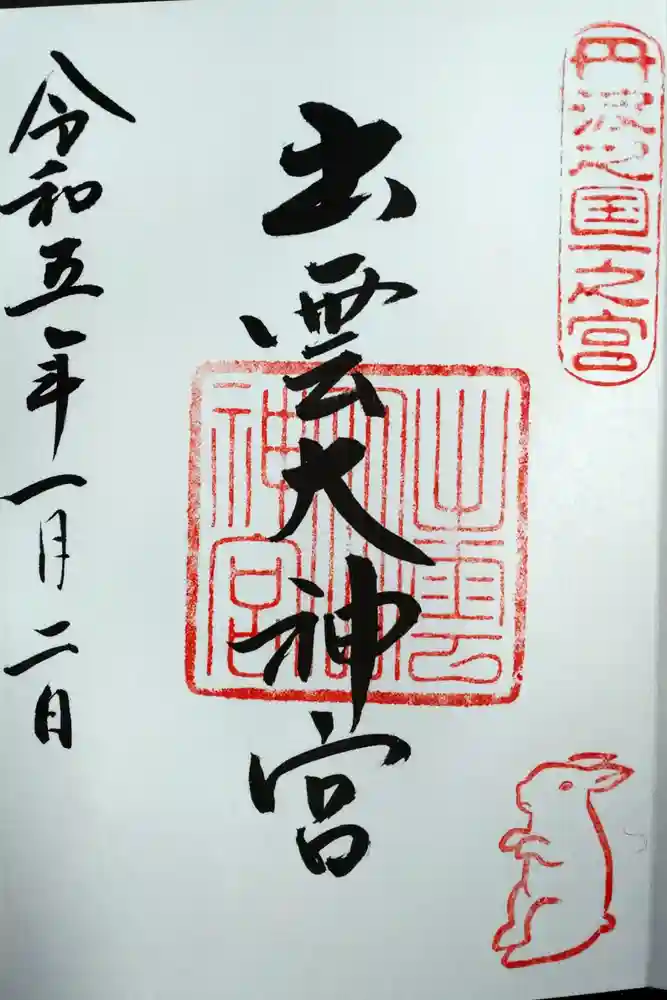 丹波之国一之宮
出雲大神宮
出雲
神宮
令和五年一月二日